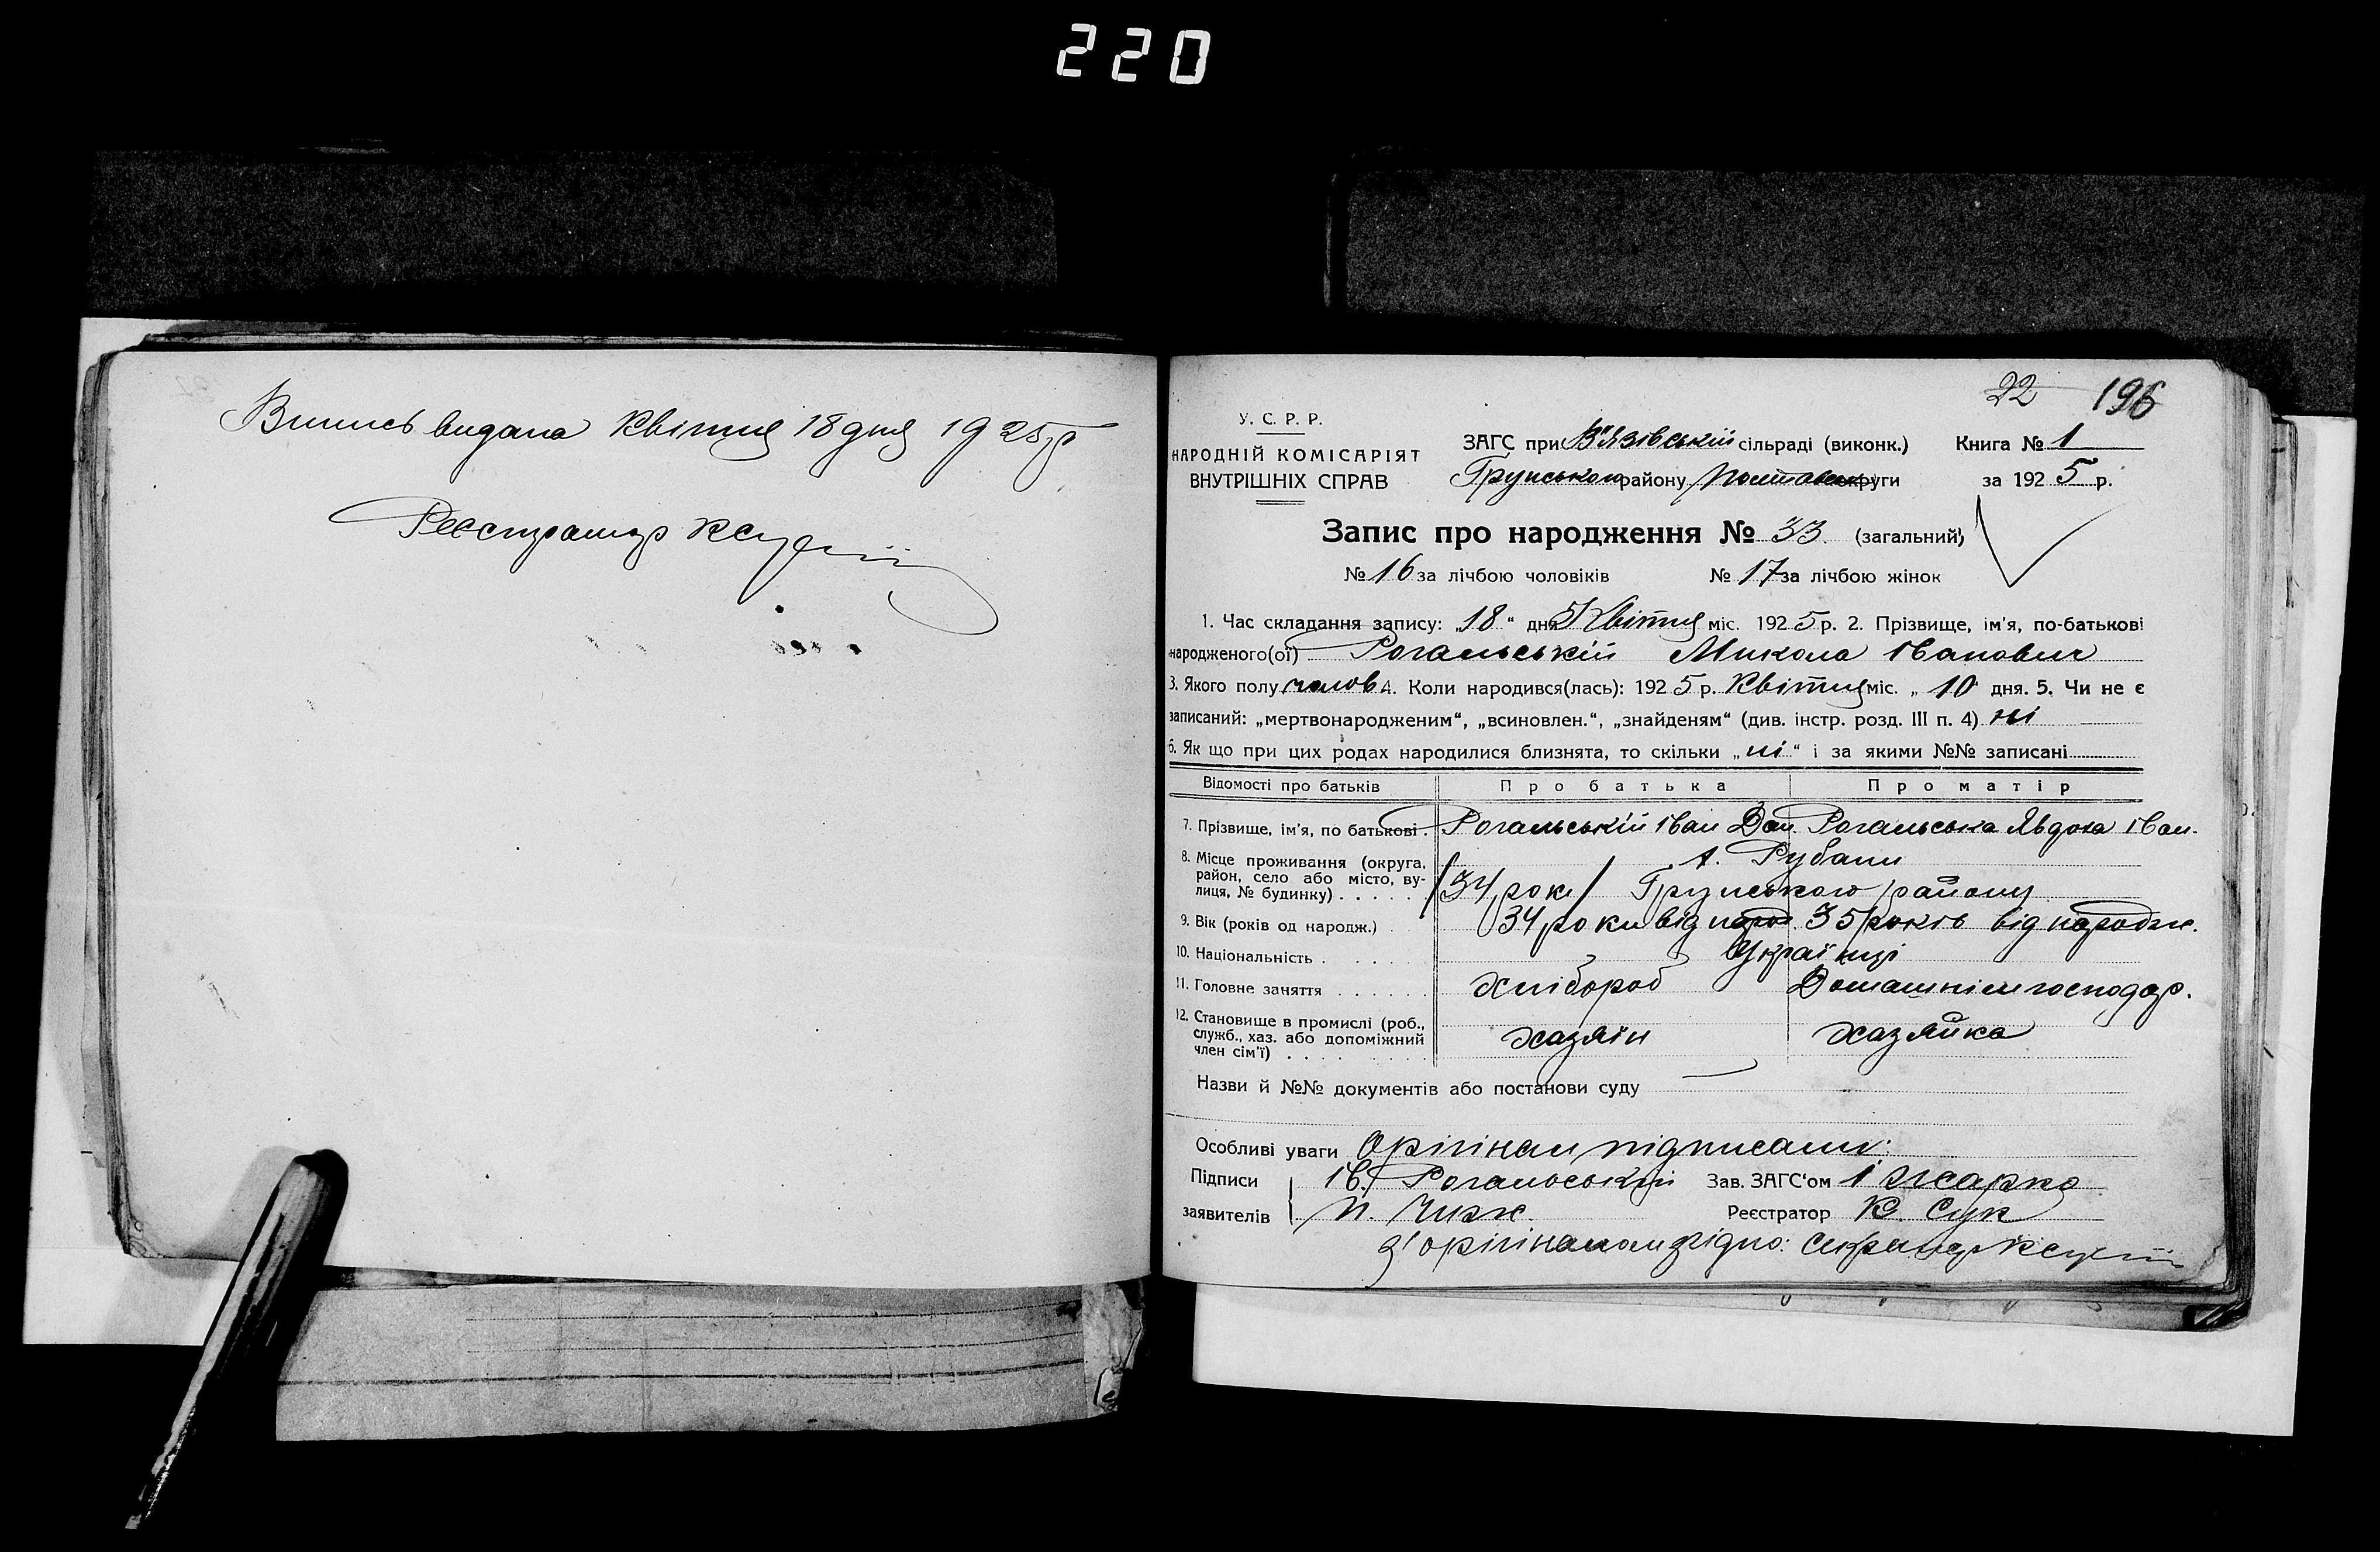 220
Випись видана Квітня 18 дня 1925 р
Реєстратор КСук
22 196
У. С. Р. Р.
НАРОДНІЙ КОМІСАРІЯТ
ВНУТРІШНІХ СПРАВ
ЗАГС при В'язівській сільраді (виконк.) Книга № 1
Грунського району Полтавськ округи за 1925 р.
Запис про народження № 33. (загальний)
№ 16 за лічбою чоловіків № 17 за лічбою жінок
1. Час складання запису: „18“ дня Квітня міс. 1925 р. 2. Прізвище, ім'я, по-батькові
народженого(ої) Рогальській Микола Іванович
3. Якого полу чолов 4. Коли народився(лась): 1925 р. Квітня міс. „10 дня. 5. Чи не є
записаний: „мертвонародженим“, „всиновлен.“, „знайденям“ (див. інстр. розд. III п. 4) ні
6. Як що при цих родах народилися близнята, то скільки „ні“ і за якими №№ записані
Відомості про батьків Про батька Про матір
7. Прізвище, ім'я, по батькові. Рогальській Іван Дан. Рогальська Явдоха Іван.
8. Місце проживання (округа, район, село або місто, вулиця, № будинку) х. Рубани
/34 рок/ Грунського району
9. Вік (років од народж.) 34 роки від народ. 35 років від народж.
10. Національність Українці
11. Головне заняття Хлібороб Домашнім господар.
12. Становище в промислі (роб., служб., хаз. або допоміжний член сім'ї) хазяїн хазяйка
Назви й №№ документів або постанови суду
Особливі уваги Орігінал підписали:
Підписи Ів. Рогальській Зав. ЗАГС'ом І Жарко
заявителів П. Чиж. Реєстратор К. Сук
З орігіналом згідно: Секретар КСук